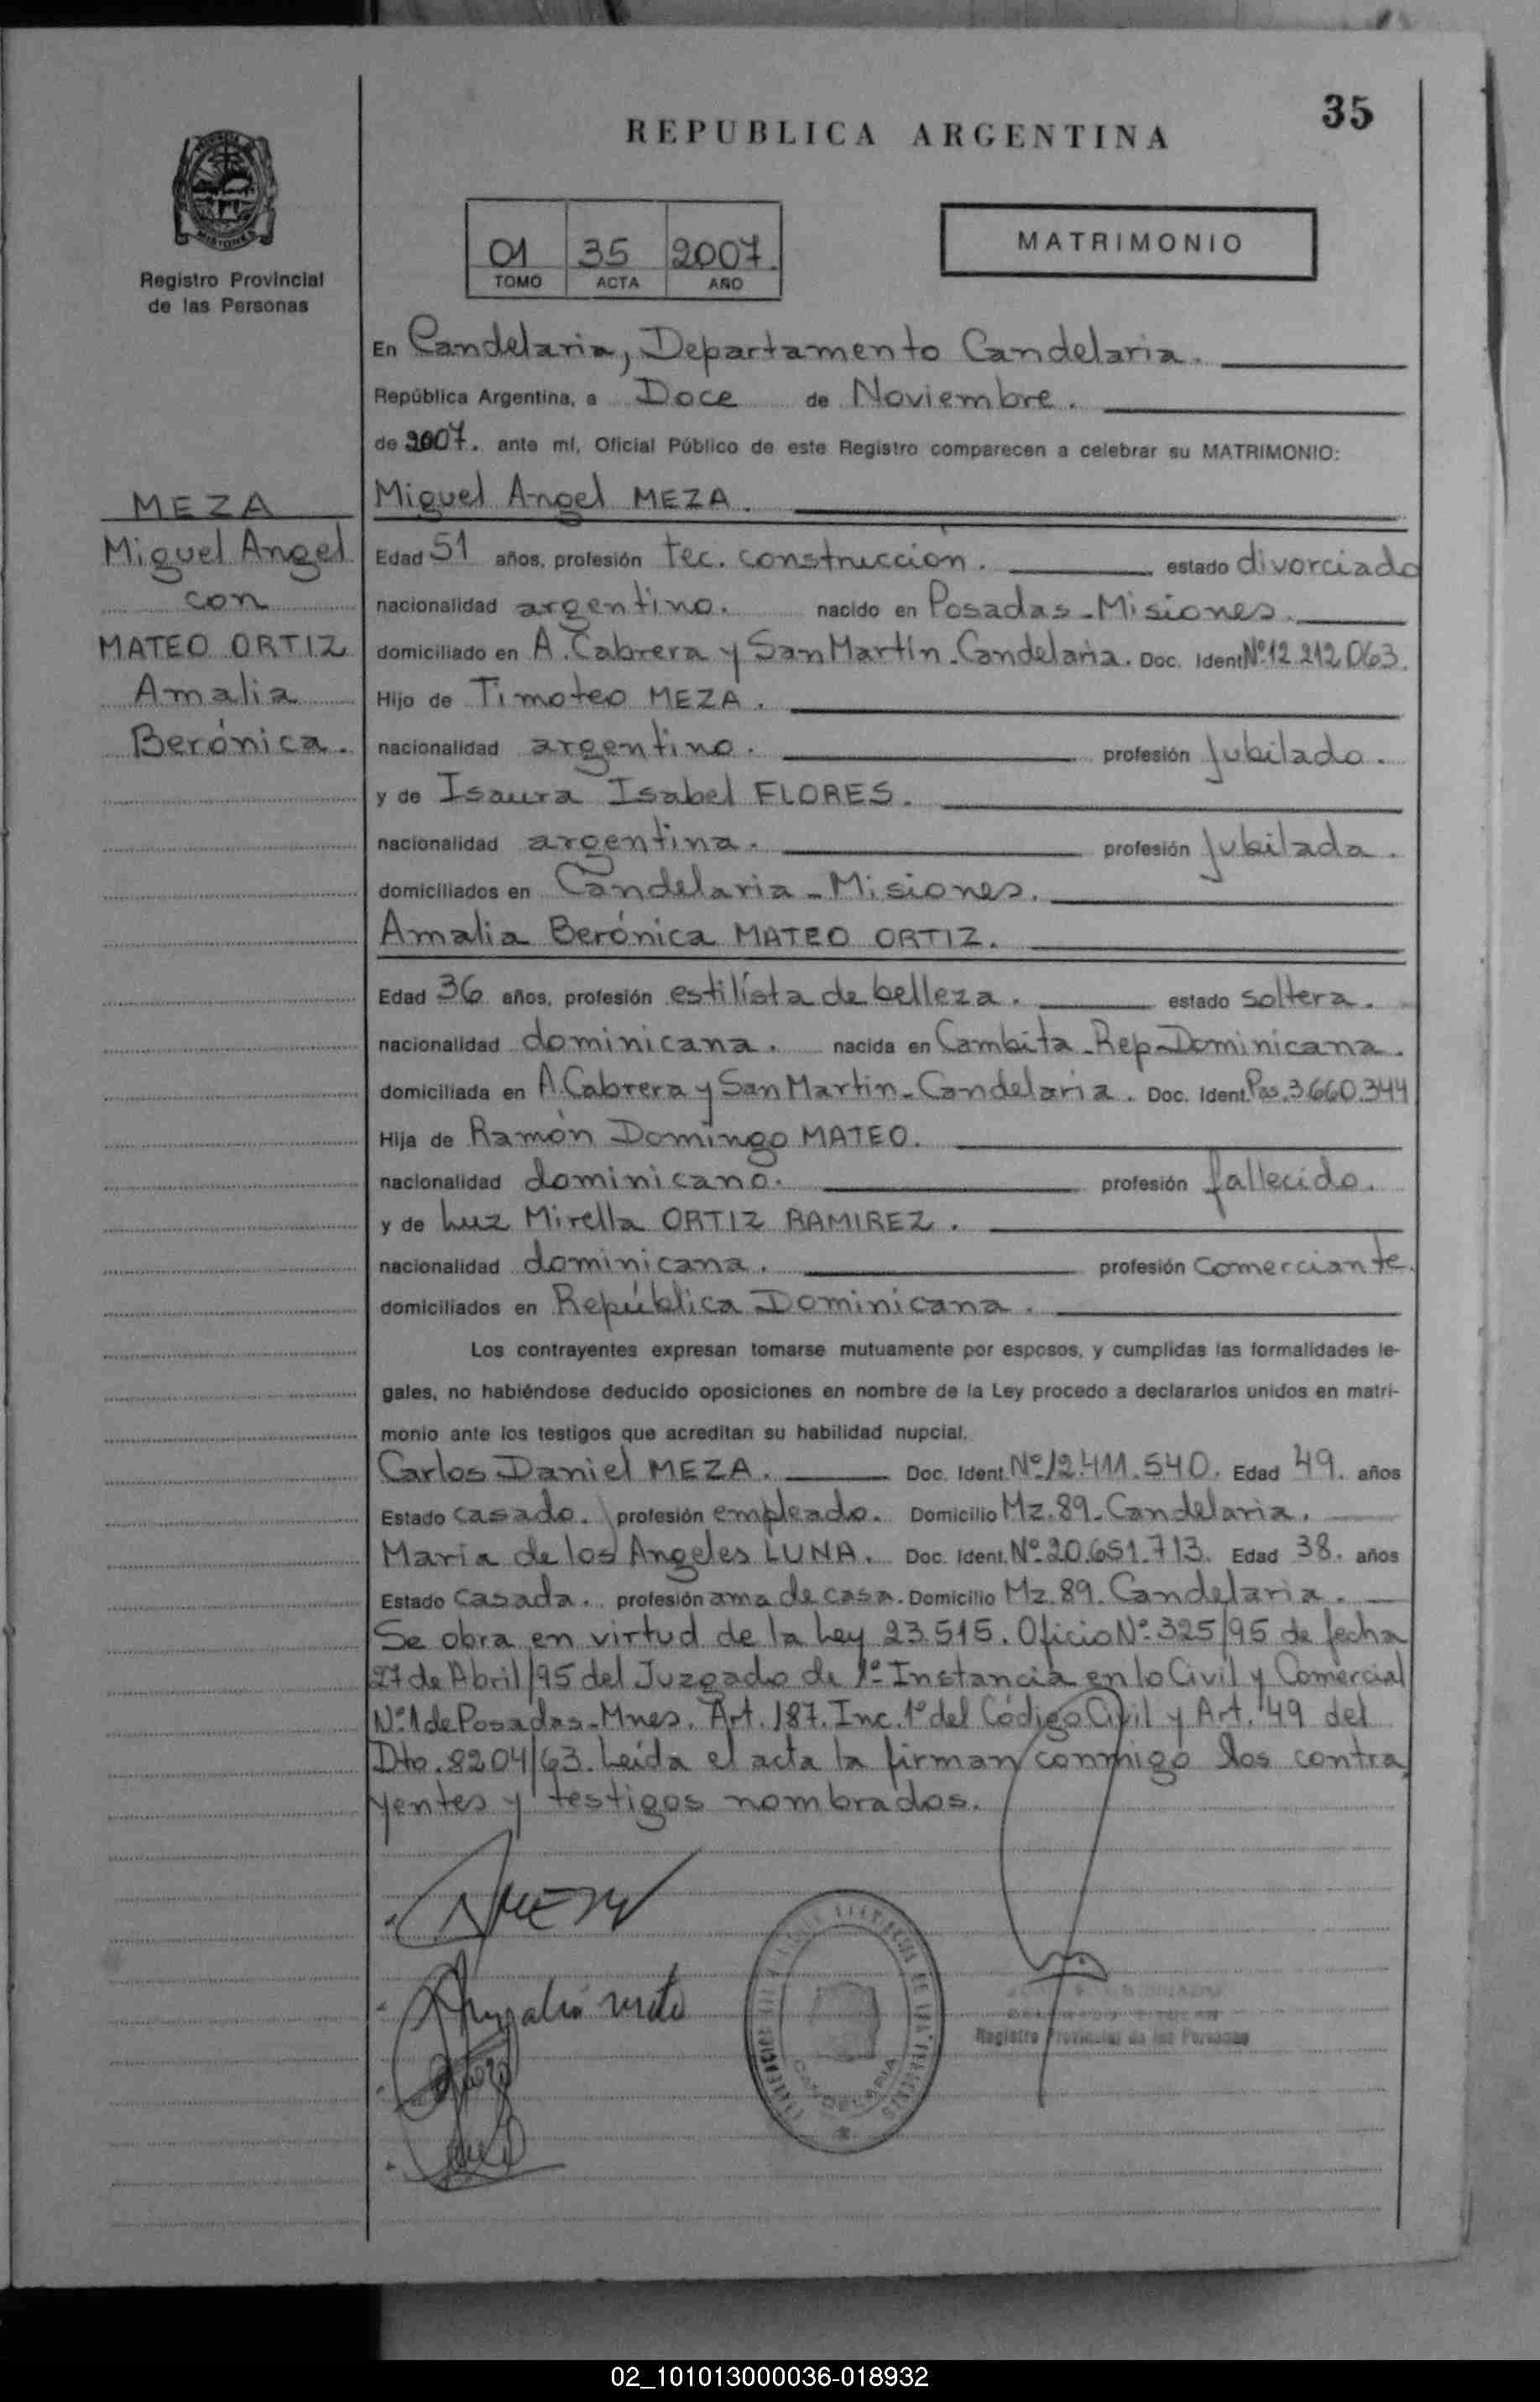 35
REPUBLICA ARGENTINA
MISIONES
Registro Provincial
de las Personas
01 35 2007
TOMO ACTA AÑO
MATRIMONIO
MEZA
Miguel Angel
con
MATEO ORTIZ
Amalia
Berónica.
En Candelaria, Departamento Candelaria.
República Argentina, a Doce de Noviembre.
de 2007. ante mí, Oficial Público de este Registro comparecen a celebrar su MATRIMONIO:
Miguel Angel MEZA.
Edad 51 años, profesión tec. construcción. estado divorciado
nacionalidad argentino. nacido en Posadas-Misiones.
domiciliado en A. Cabrera y San Martín-Candelaria. Doc. Ident Nº 12.212.063.
Hijo de Timoteo MEZA.
nacionalidad argentino. profesión Jubilado.
y de Isaura Isabel FLORES.
nacionalidad argentina. profesión Jubilada.
domiciliados en Candelaria-Misiones.
Amalia Berónica MATEO ORTIZ.
Edad 36 años, profesión estilísta de belleza. estado soltera.
nacionalidad dominicana. nacida en Cambita-Rep-Dominicana.
domiciliada en A. Cabrera y San Martín-Candelaria. Doc. Ident. Pas. 3.660.344
Hija de Ramón Domingo MATEO.
nacionalidad dominicano. profesión fallecido.
y de Luz Mirella ORTIZ RAMIREZ.
nacionalidad dominicana. profesión Comerciante.
domiciliados en República Dominicana.
Los contrayentes expresan tomarse mutuamente por esposos, y cumplidas las formalidades le-
gales, no habiéndose deducido oposiciones en nombre de la Ley procedo a declararlos unidos en matri-
monio ante los testigos que acreditan su habilidad nupcial.
Carlos Daniel MEZA. Doc. Ident. Nº 12.411.540. Edad 49. años
Estado casado. profesión empleado. Domicilio Mz. 89-Candelaria.
María de los Angeles LUNA. Doc. Ident. Nº 20.651.713. Edad 38. años
Estado casada. profesión ama de casa. Domicilio Mz. 89. Candelaria.
Se obra en virtud de la Ley 23.515. Oficio Nº 325/95 de fecha
27 de Abril/95 del Juzgado de 1º Instancia en lo Civil y Comercial
Nº 1 de Posadas-Mnes. Art. 187. Inc. 1º del Código Civil y Art. 49 del
Dto. 8204/63. Leída el acta la firman conmigo los contra
yentes y testigos nombrados.
CANDELARIA
Registro Provincial de las Personas
02_101013000036-018932